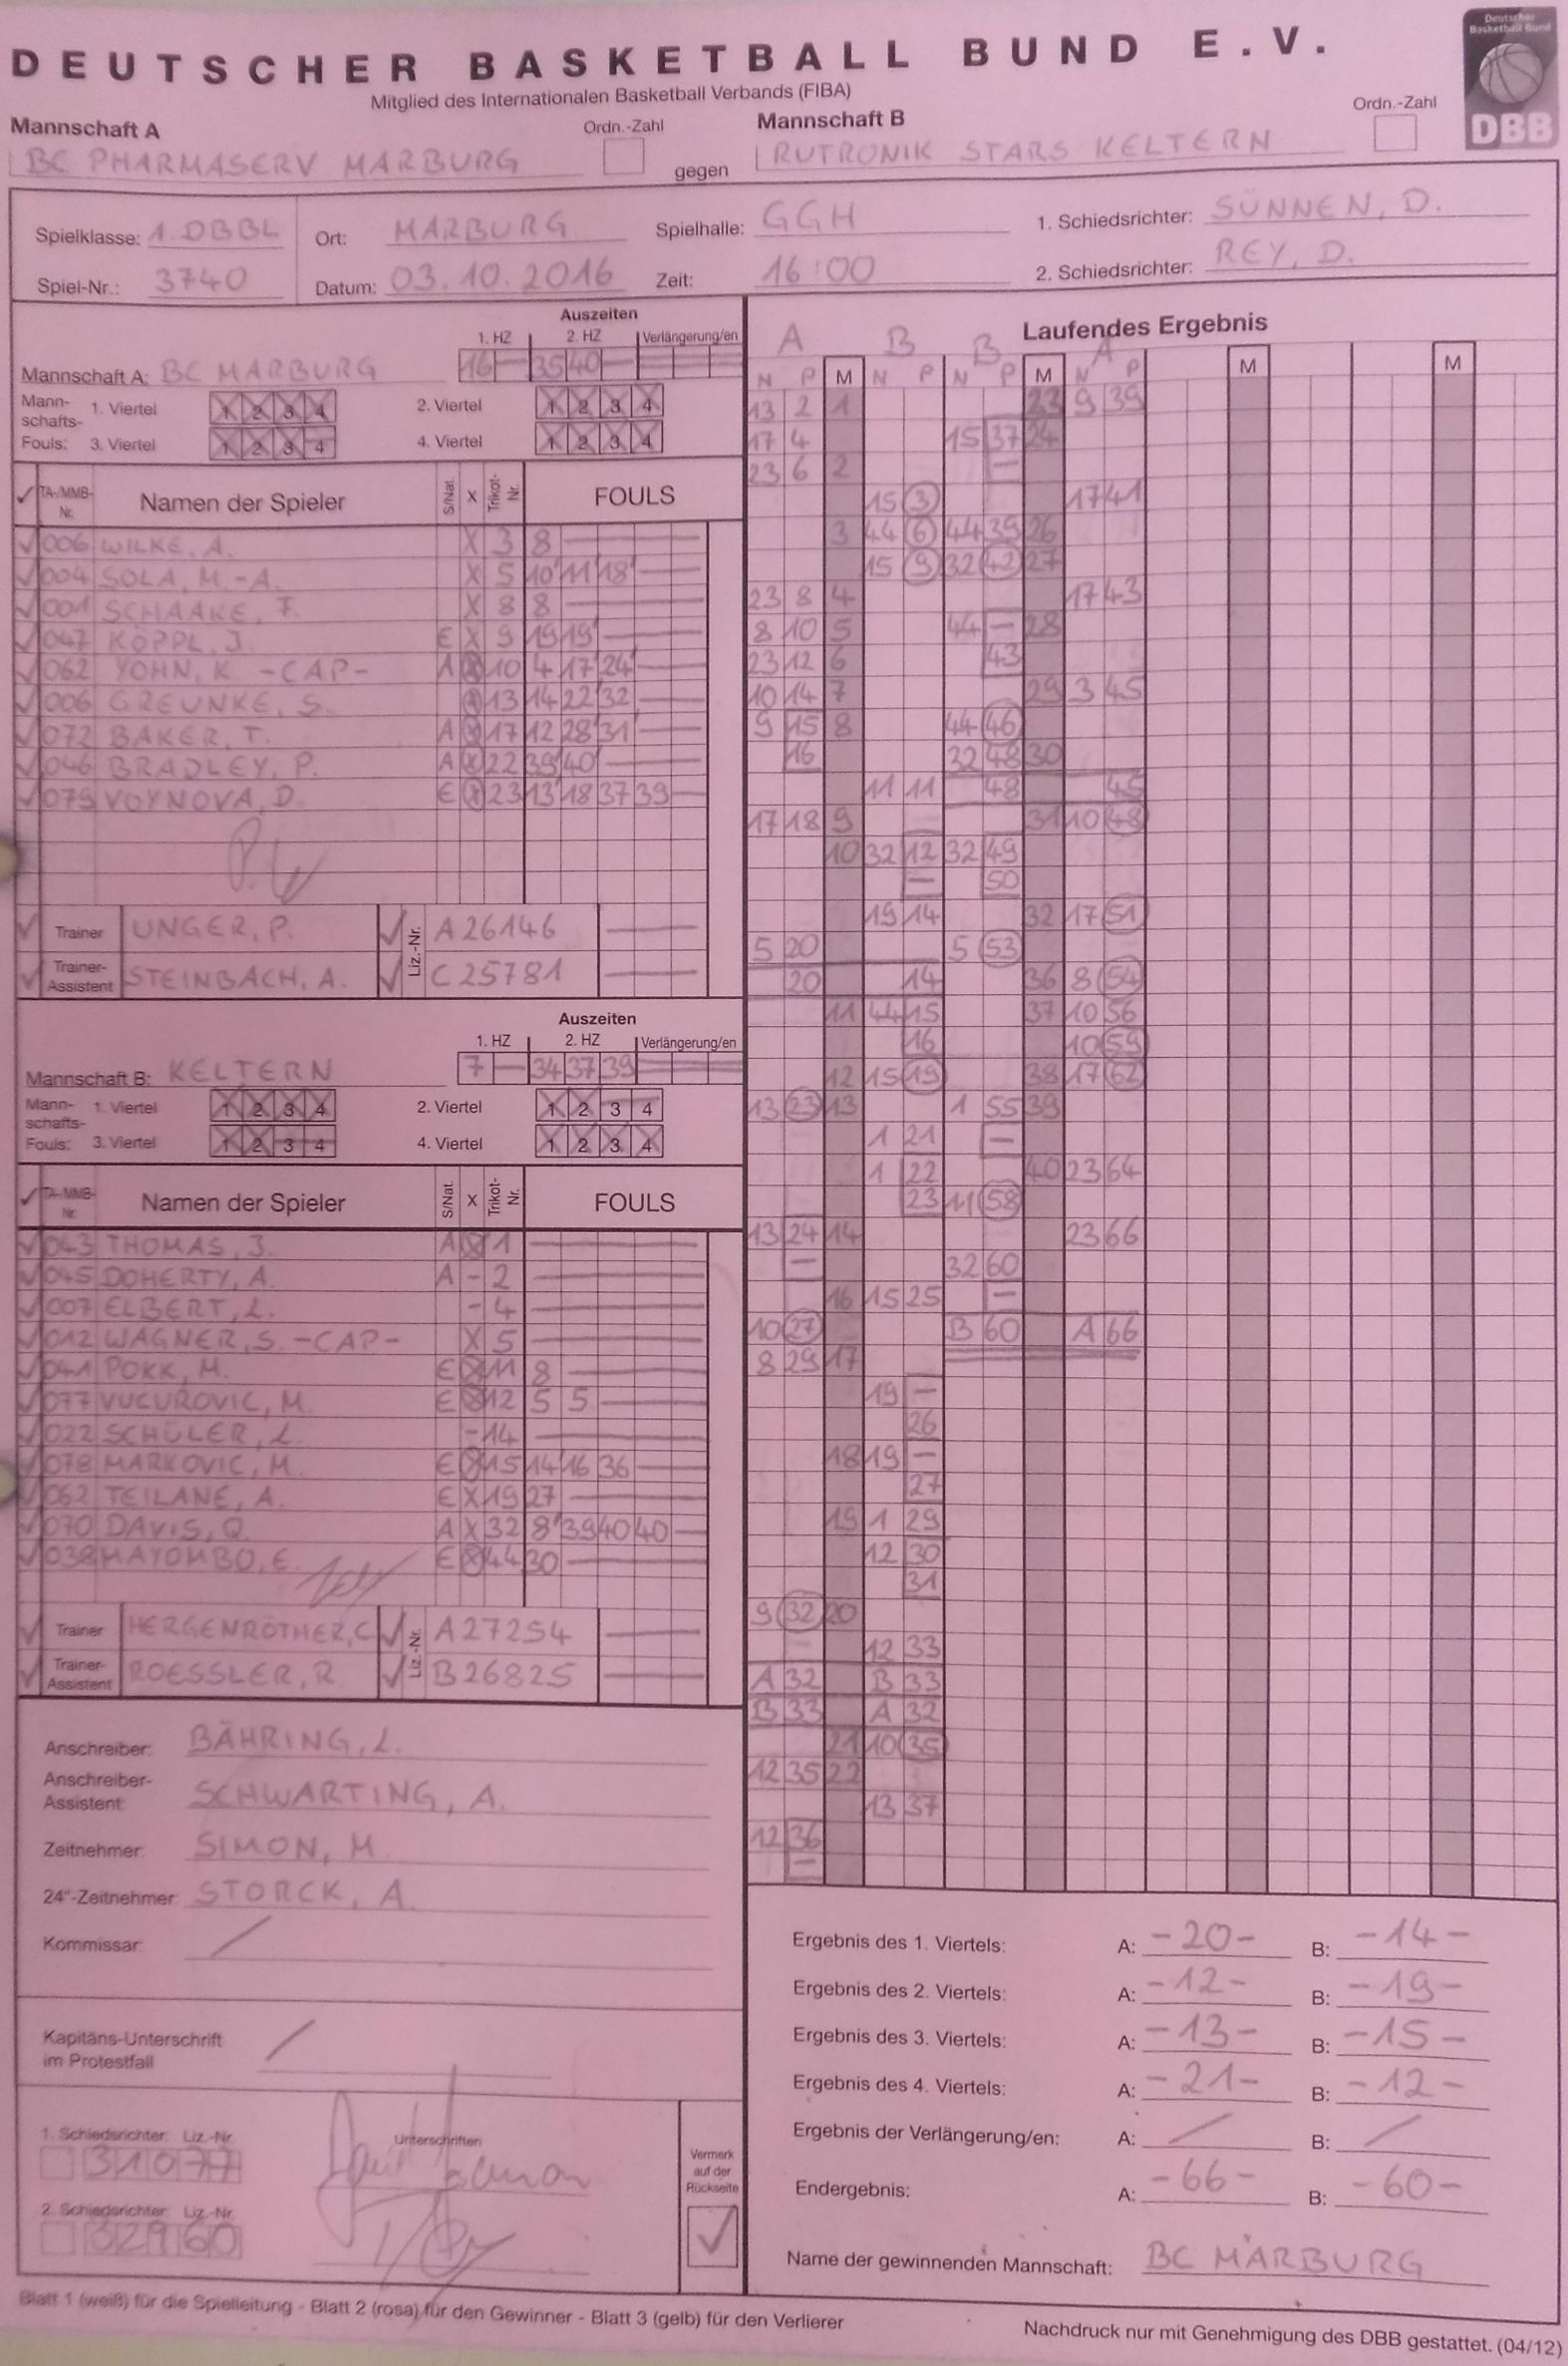 DEUTSCHER BASKETBALL BUND E.V.
Mitglied des Internationalen Basketball Verbands (FIBA)
Deutscher Basketball Bund
DBB
Mannschaft A Ordn.-Zahl Mannschaft B Ordn.-Zahl
BC PHARMASERV MARBURG gegen RUTRONIK STARS KELTERN
Spielklasse: 1. DBBL Ort: MARBURG Spielhalle: GGH 1. Schiedsrichter: SÜNNEN, D.
Spiel-Nr.: 3740 Datum: 03.10.2016 Zeit: 16:00 2. Schiedsrichter: REY, D.
Auszeiten
1. HZ 2. HZ Verlängerung/en
Mannschaft A: BC MARBURG 16 — 35 40 —
Mannschafts-Fouls: 1. Viertel 1 2 3 4 2. Viertel 1 2 3 4
3. Viertel 1 2 3 4 4. Viertel 1 2 3 4
TA-/MMB-Nr. Namen der Spieler S/Nat. X Trikot-Nr. FOULS
006 WILKE, A. X 3 8
004 SOLA, M.-A. X 5 10 11 18
001 SCHAAKE, F. X 8 8
047 KÖPPL, J. E X 9 19 19
062 YOHN, K -CAP- A X 10 4 17 24
006 GREUNKE, S. X 13 14 22 32
072 BAKER, T. A X 17 12 28 31
046 BRADLEY, P. A X 22 39 40
079 VOYNOVA, D. E X 23 13 18 37 39
Trainer UNGER, P. Liz.-Nr. A 26146
Trainer-Assistent STEINBACH, A. C 25781
Auszeiten
1. HZ 2. HZ Verlängerung/en
Mannschaft B: KELTERN 7 — 34 37 39
Mannschafts-Fouls: 1. Viertel 1 2 3 4 2. Viertel 1 2 3 4
3. Viertel 1 2 3 4 4. Viertel 1 2 3 4
TA-/MMB-Nr. Namen der Spieler S/Nat. X Trikot-Nr. FOULS
043 THOMAS, J. A X 1
045 DOHERTY, A. A - 2
007 ELBERT, L. - 4
012 WAGNER, S. -CAP- X 5
041 POKK, M. E X 11 8
077 VUCUROVIC, M. E X 12 5 5
022 SCHÜLER, L. - 14
078 MARKOVIC, M. E X 15 14 16 36
062 TEILANE, A. E X 19 27
070 DAVIS, Q. A X 32 8 39 40 40
038 MAYOMBO, E. E X 44 30
Trainer HERGENRÖTHER, C Liz.-Nr. A 27254
Trainer-Assistent ROESSLER, R. B 26825
Anschreiber: BÄHRING, L.
Anschreiber-Assistent: SCHWARTING, A.
Zeitnehmer: SIMON, M
24"-Zeitnehmer: STORCK, A.
Kommissar: /
Kapitäns-Unterschrift im Protestfall /
1. Schiedsrichter: Liz.-Nr. Unterschriften
31077
2. Schiedsrichter: Liz.-Nr.
32960
Vermerk auf der Rückseite
Laufendes Ergebnis
A B B A
N P M N P N P M N P M M
13 2 1 23 9 39
17 4 15 37 24
23 6 2 —
15 3 17 41
3 44 6 44 39 26
15 9 32 42 27
23 8 4 17 43
8 10 5 44 — 28
23 12 6 43
10 14 7 29 3 45
9 15 8 44 46
16 32 48 30
11 11 48 45
17 18 9 31 10 48
10 32 12 32 49
— 50
19 14 32 17 51
5 20 5 53
20 14 36 8 54
11 44 15 37 10 56
16 10 59
12 15 19 38 17 62
13 23 13 1 55 39
1 21 —
1 22 40 23 64
23 11 58
13 24 14 23 66
— 32 60
16 15 25 —
10 27 B 60 A 66
8 29 17
19 —
26
18 19 —
27
19 1 29
12 30
31
9 32 20
12 33
A 32 B 33
B 33 A 32
21 10 35
12 35 22
13 37
12 36
—
Ergebnis des 1. Viertels: A: -20- B: -14-
Ergebnis des 2. Viertels: A: -12- B: -19-
Ergebnis des 3. Viertels: A: -13- B: -15-
Ergebnis des 4. Viertels: A: -21- B: -12-
Ergebnis der Verlängerung/en: A: / B: /
Endergebnis: A: -66- B: -60-
Name der gewinnenden Mannschaft: BC MARBURG
Blatt 1 (weiß) für die Spielleitung - Blatt 2 (rosa) für den Gewinner - Blatt 3 (gelb) für den Verlierer
Nachdruck nur mit Genehmigung des DBB gestattet. (04/12)